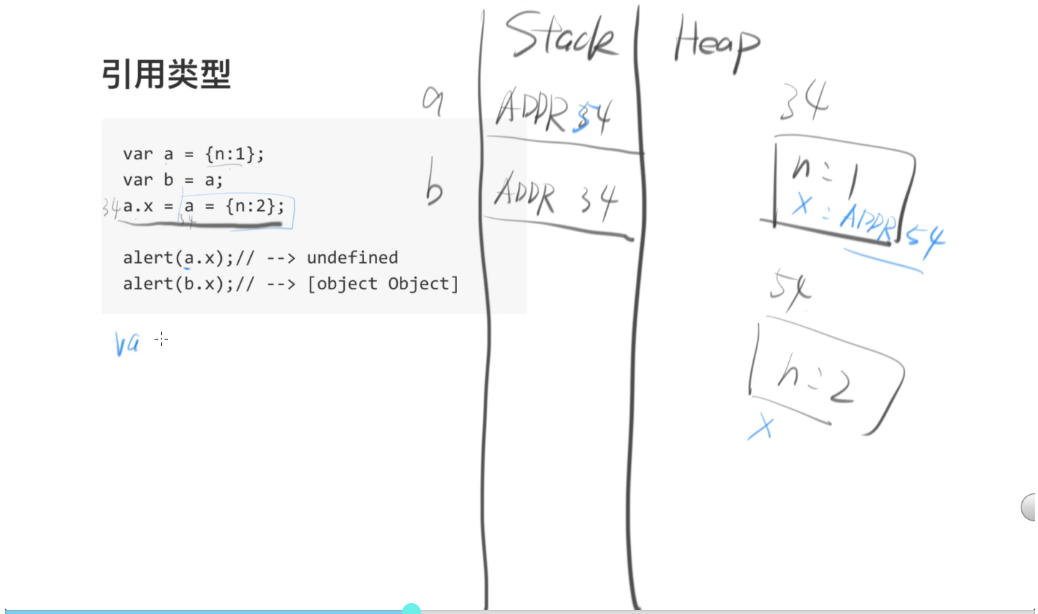 引用类型
var a = {n:1};
var b = a;
34 a.x = a = {n:2};
34
alert(a.x);// --> undefined
alert(b.x);// --> [object Object]
va
Stack
Heap
a ADDR 54
b ADDR 34
34
n = 1
x = ADDR 54
54
n = 2
x